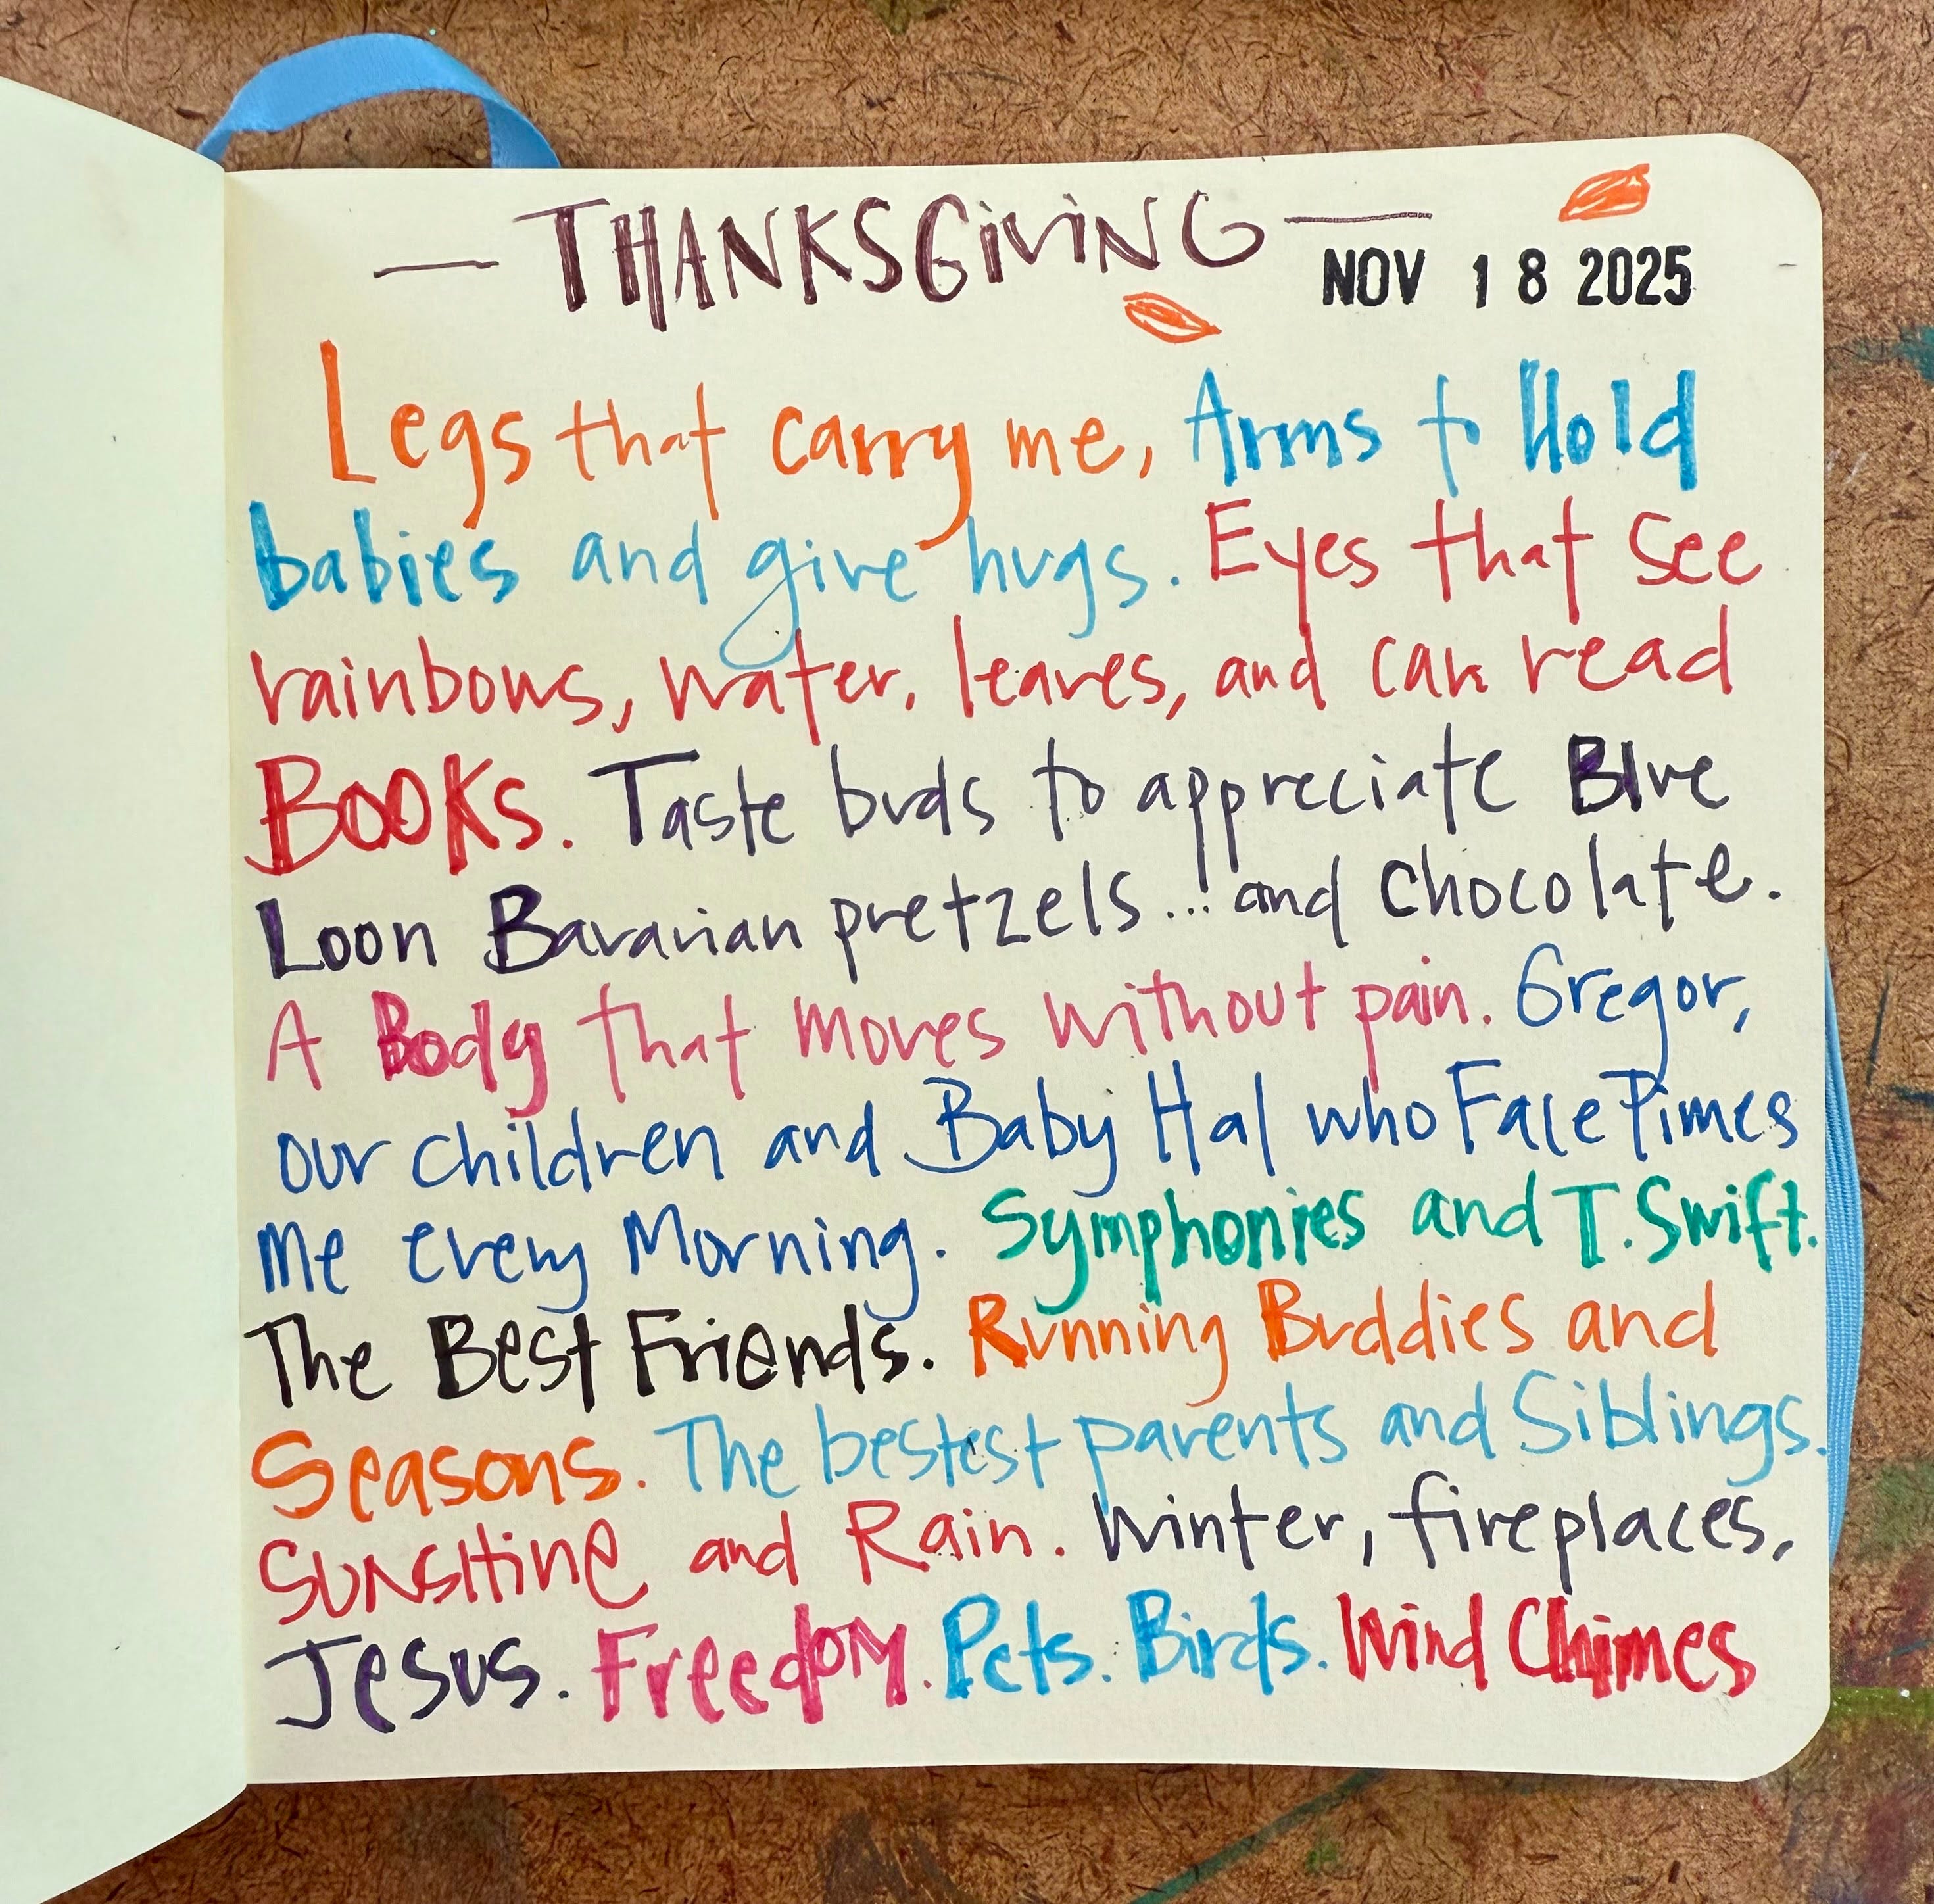 — THANKSGiViNG —
NOV 18 2025
Legs that carry me, Arms to Hold
babies and give hugs. Eyes that see
rainbows, water, leaves, and can read
BOOKS. Taste buds to appreciate Blue
Loon Bavarian pretzels...! and chocolate.
A Body that moves without pain. Gregor,
our children and Baby Hal who FaceTimes
me every Morning. Symphonies and T. Swift.
The Best Friends. Running Buddies and
Seasons. The bestest parents and Siblings.
SUNSHinE and Rain. Winter, fireplaces,
Jesus. FreedOM. Pets. Birds. Wind Chimes